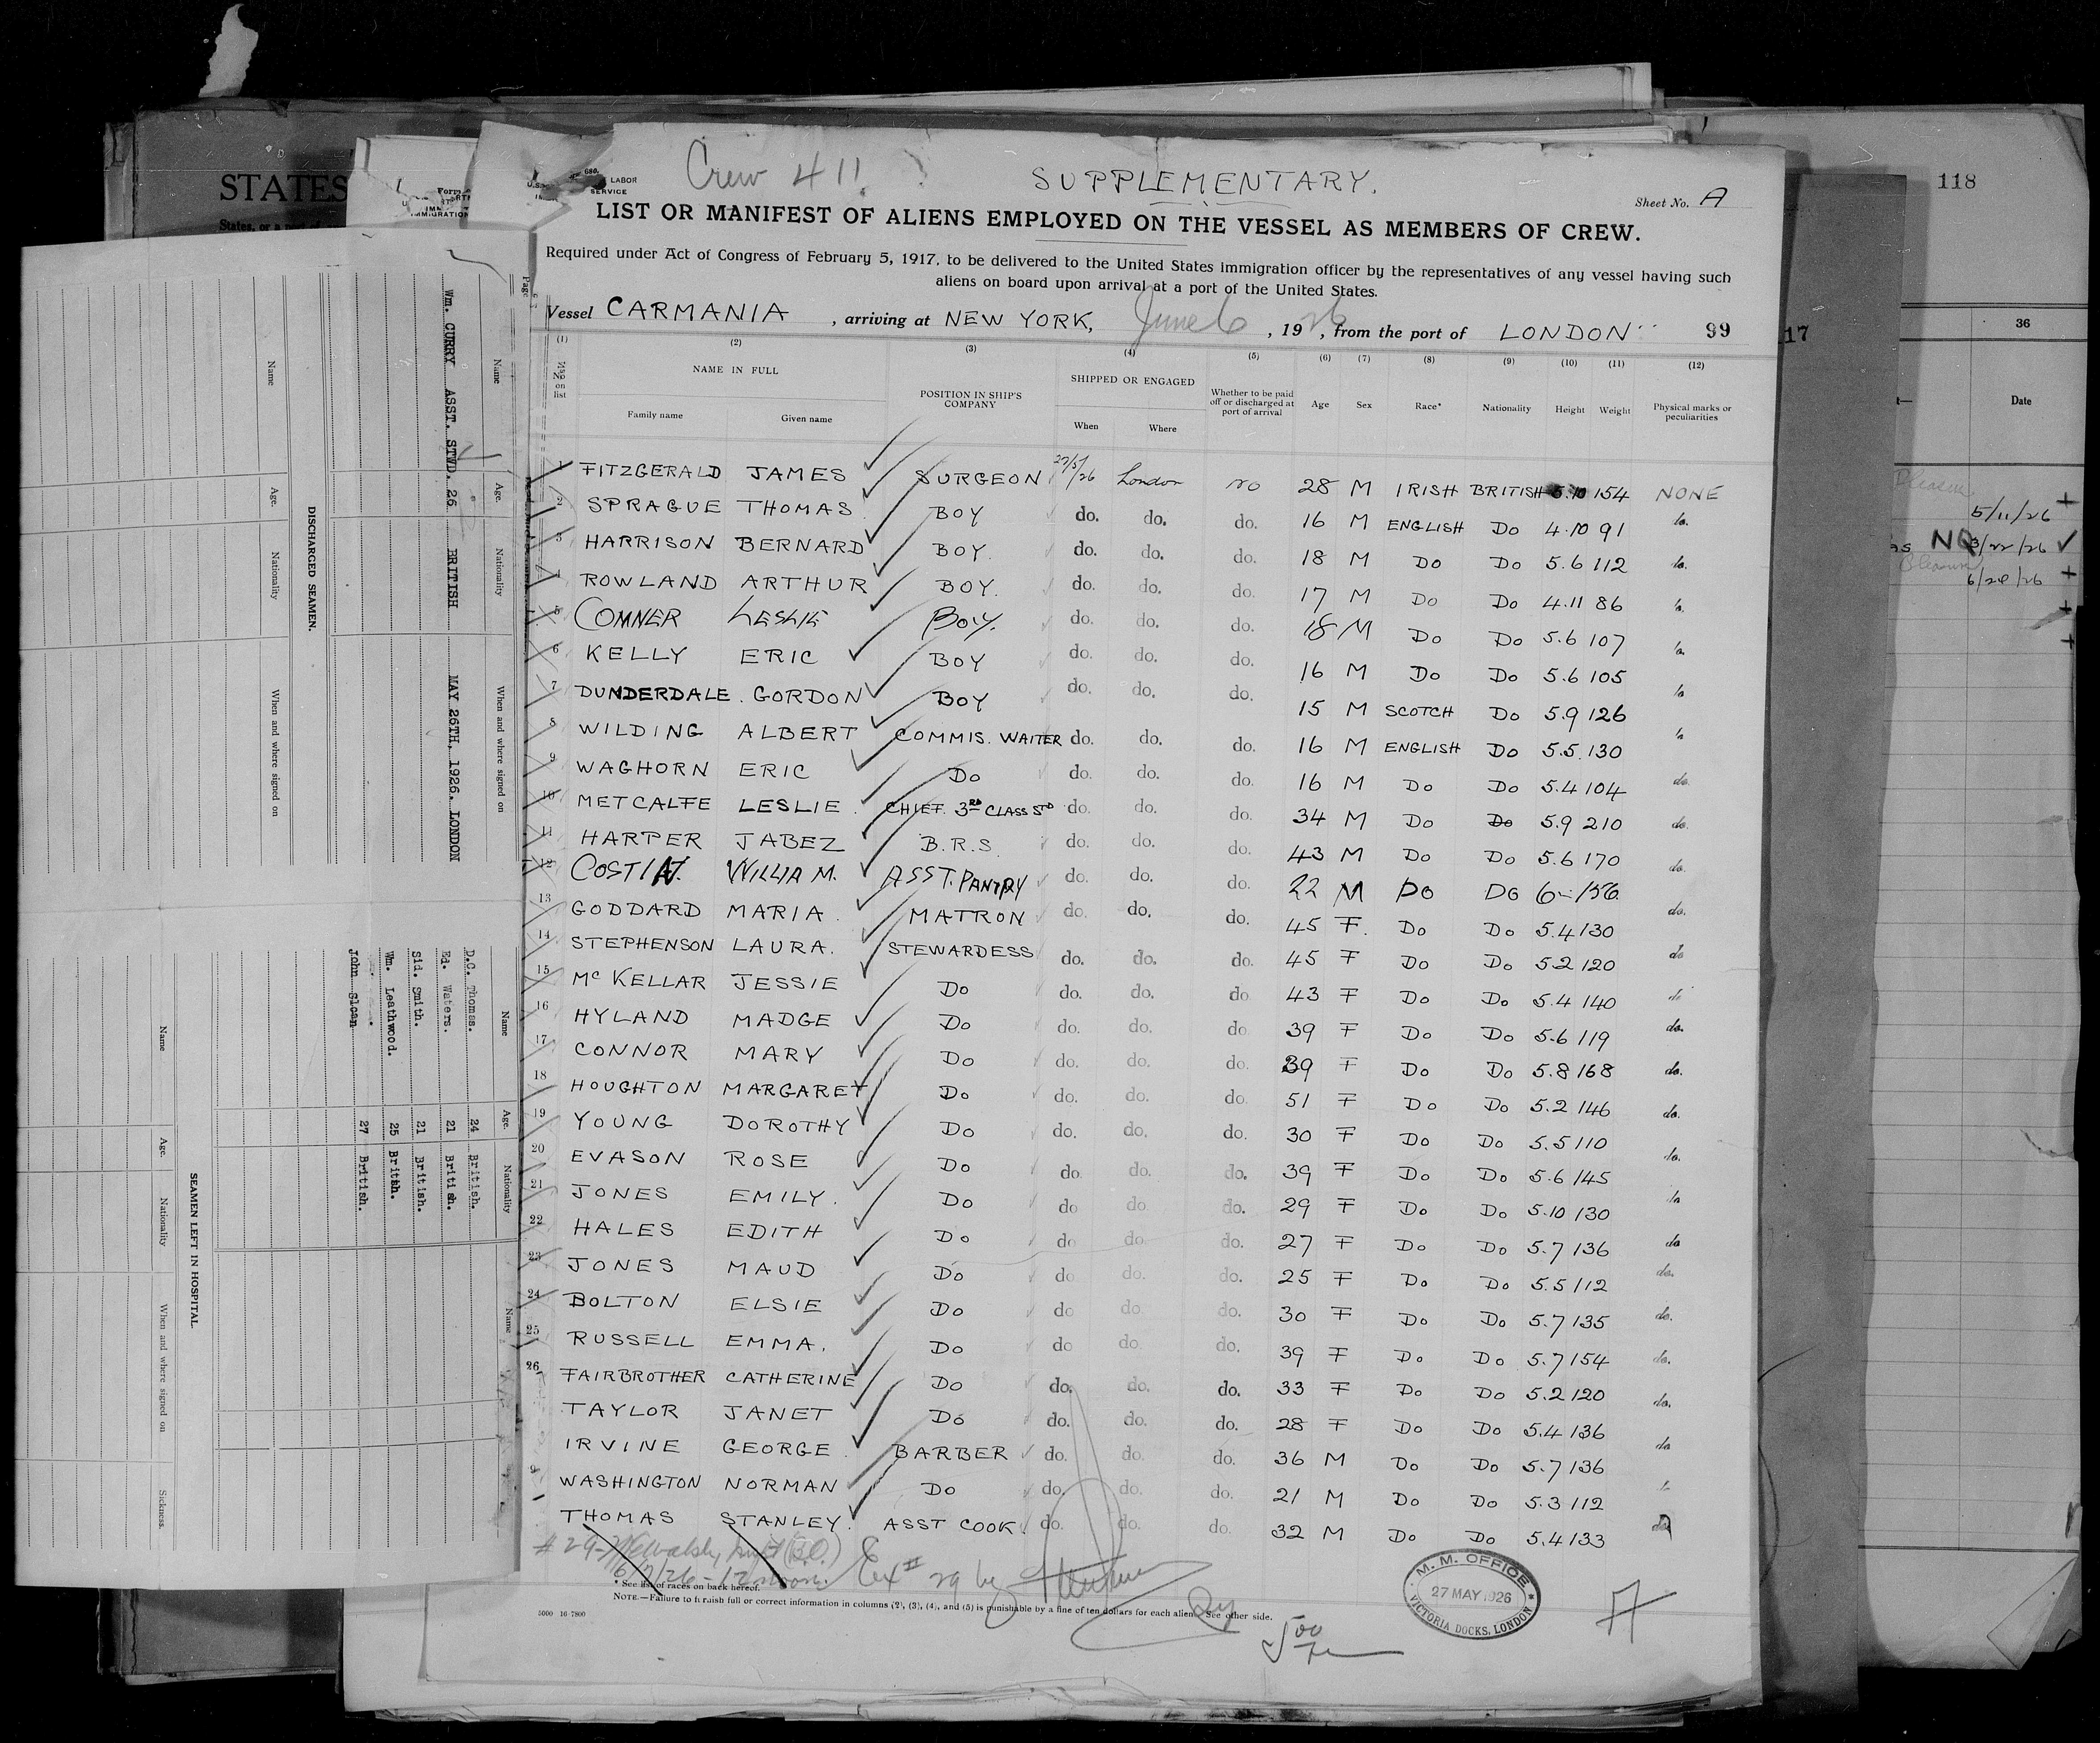 Crew 411
SUPPLEMENTARY.
LABOR
SERVICE
Sheet No. A
LIST OR MANIFEST OF ALIENS EMPLOYED ON THE VESSEL AS MEMBERS OF CREW.
Required under Act of Congress of February 5, 1917, to be delivered to the United States immigration officer by the representatives of any vessel having such
aliens on board upon arrival at a port of the United States.
Vessel CARMANIA, arriving at NEW YORK, June 6, 1926, from the port of LONDON 99
(1) (2) (3) (4) (5) (6) (7) (8) (9) (10) (11) (12)
No on list NAME IN FULL Family name Given name POSITION IN SHIP'S COMPANY SHIPPED OR ENGAGED When Where Whether to be paid off or discharged at port of arrival Age Sex Race* Nationality Height Weight Physical marks or peculiarities
1 FITZGERALD JAMES SURGEON 27/5/26 London no 28 M IRISH BRITISH 5.10 154 NONE
2 SPRAGUE THOMAS BOY do. do. do. 16 M ENGLISH Do 4.10 91 do.
3 HARRISON BERNARD BOY. do. do. do. 18 M Do Do 5.6 112 do.
4 ROWLAND ARTHUR BOY. do. do. do. 17 M Do Do 4.11 86 do.
5 COMNER LESLIE BOY. do. do. do. 18 M Do Do 5.6 107 do.
6 KELLY ERIC BOY do. do. do. 16 M Do Do 5.6 105 do
7 DUNDERDALE. GORDON BOY do. do. do. 15 M SCOTCH Do 5.9 126 do
8 WILDING ALBERT COMMIS. WAITER do. do. do. 16 M ENGLISH Do 5.5. 130 do.
9 WAGHORN ERIC Do do. do. do. 16 M Do Do 5.4 104 do.
10 METCALFE LESLIE. CHIEF. 3RD CLASS STD do. do. do. 34 M Do Do 5.9 210 do.
11 HARPER JABEZ B.R.S. do. do. do. 43 M Do Do 5.6 170 do.
12 COSTIN. WILLIAM. ASST. PANTRY do. do. do. 22 M DO DO 6 - 156 do.
13 GODDARD MARIA. MATRON do. do. do. 45 F. Do Do 5.4 130 do
14 STEPHENSON LAURA. STEWARDESS do. do. do. 45 F Do Do 5.2 120 do
15 McKELLAR JESSIE Do do. do. do 43 F Do Do 5.4 140 do.
16 HYLAND MADGE Do do. do. do 39 F Do Do 5.6 119 do.
17 CONNOR MARY Do do. do. do. 39 F Do Do 5.8 168 do.
18 HOUGHTON MARGARET Do do. do. do. 51 F Do Do 5.2 146 do.
19 YOUNG DOROTHY Do do. do. do. 30 F Do Do 5.5 110 do.
20 EVASON ROSE Do do. do. do. 39 F Do Do 5.6 145 do
21 JONES EMILY. Do do do. do. 29 F Do Do 5.10 130 do
22 HALES EDITH Do do do. do. 27 F Do Do 5.7 136 do.
23 JONES MAUD Do do do. do. 25 F Do Do 5.5 112 do.
24 BOLTON ELSIE Do do do. do. 30 F Do Do 5.7 135 do.
25 RUSSELL EMMA. Do do do. do. 39 F Do Do 5.7 154 do.
26 FAIRBROTHER CATHERINE Do do. do. do. 33 F Do Do 5.2 120 do.
TAYLOR JANET Do do. do. do. 28 F Do Do 5.4 136 do
IRVINE GEORGE. BARBER do. do. do. 36 M Do Do 5.7 136
WASHINGTON NORMAN Do do. do. do. 21 M Do Do 5.3 112
THOMAS STANLEY. ASST COOK. do. do. do. 32 M Do Do 5.4 133 do
* See list of races on back hereof.
NOTE.—Failure to furnish full or correct information in columns (2), (3), (4), and (5) is punishable by a fine of ten dollars for each alien. See other side.
M. M. OFFICE
27 MAY 1926
VICTORIA DOCKS, LONDON
A
STATES
118
17
36
Date
5/11/26
NQ 3/22/26
6/28/26
DISCHARGED SEAMEN.
Name Age. Nationality When and where signed on
Wm. CURRY ASST. STWD. 26 BRITISH MAY 26TH, 1926. LONDON
Name Age. Nationality When and where signed on
SEAMEN LEFT IN HOSPITAL
Name Age. Nationality Name
D.C. Thomas. 24 British.
Ed. Waters. 21 British.
Sid. Smith. 21 British.
Wm. Leathwood. 25 Britsh.
John Sloan 27 British.
Name Age. Nationality When and where signed on Sickness.